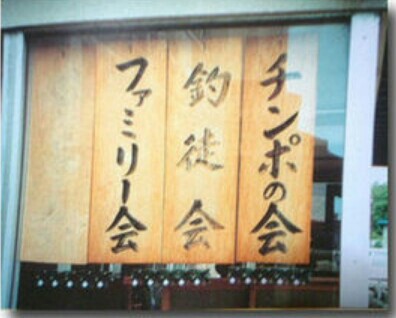 チンポの会
釣徒会
ファミリー会